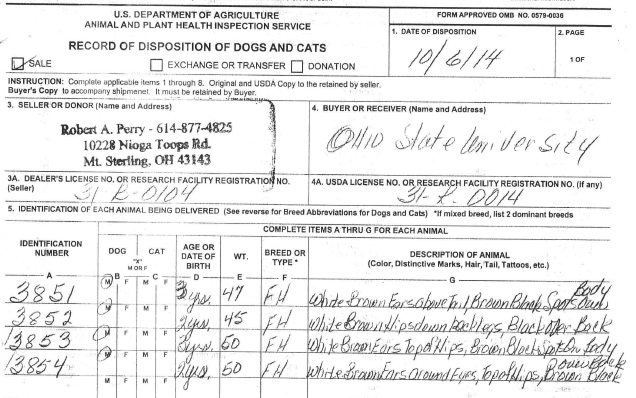 U.S. DEPARTMENT OF AGRICULTURE
ANIMAL AND PLANT HEALTH INSPECTION SERVICE
RECORD OF DISPOSITION OF DOGS AND CATS
SALE EXCHANGE OR TRANSFER DONATION
FORM APPROVED OMB NO. 0579-0036
1. DATE OF DISPOSITION
10/6/14
2. PAGE
1 OF
INSTRUCTION: Complete applicable items 1 through 8. Original and USDA Copy to the retained by seller.
Buyer's Copy to accompany shipmenet It must be retained by Buyer.
3. SELLER OR DONOR (Name and Address)
Robert A. Perry - 614-877-4825
10228 Nioga Toops Rd.
Mt. Sterling, OH 43143
4. BUYER OR RECEIVER (Name and Address)
Ohio State University
3A. DEALER'S LICENSE NO. OR RESEARCH FACILITY REGISTRATION NO.
(Seller)
31-B-0104
4A. USDA LICENSE NO. OR RESEARCH FACILITY REGISTRATION NO. (if any)
31-R-0014
5. IDENTIFICATION OF EACH ANIMAL BEING DELIVERED (See reverse for Breed Abbreviations for Dogs and Cats) *If mixed breed, list 2 dominant breeds
COMPLETE ITEMS A THRU G FOR EACH ANIMAL
IDENTIFICATION
NUMBER
A
DOG CAT
"X"
M OR F
B C
AGE OR
DATE OF
BIRTH
D
WT.
E
BREED OR
TYPE *
F
DESCRIPTION OF ANIMAL
(Color, Distinctive Marks, Hair, Tail, Tattoos, etc.)
G
3851 M F M F 3yrs. 47 FH White Brown Ears above Tail Brown Black Spots Body
3852 M F M F 2yrs. 45 FH White Brown Hips down Back legs, Black over Back
3853 M F M F 3yrs. 50 FH White Brown Ears Top of Hips, Brown Black Spot On Body
3854 M F M F 2yrs. 50 FH White Brown Ears Around Eyes, Top of Hips, Brown Back
M F M F